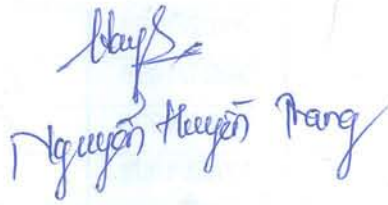 Nguyễn Huyền Trang